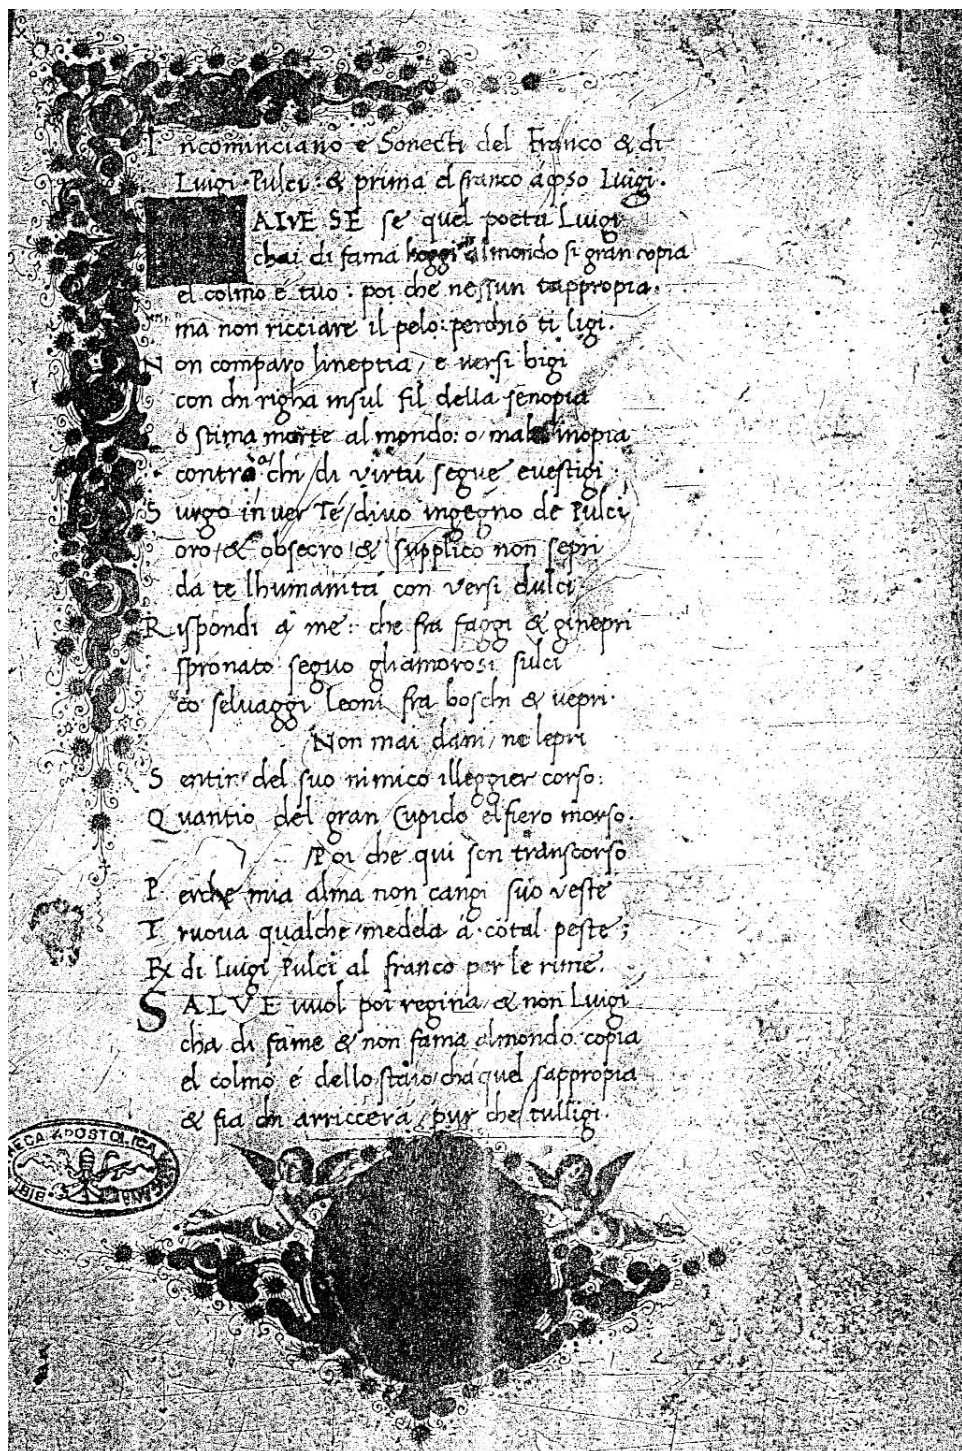 Incominciano e Sonecti del Franco & di
Luigi Pulci : & prima el franco a Luigi .
SALVE SE se quel poeta Luigi
chai di fama hoggi al mondo si gran copia
el colmo e tuo : poi che nessun tappropia .
ma non ricciare il pelo : perchio ti ligi .
Non comparo lineptia / e versi bigi
con chi righa insul fil della senopia
o stima morte al mondo : o / mala inopia
contra a chi / di virtú segue evestigi
Surgo in ver Te / divo ingegno de Pulci
oro / & obsecro / & supplico non sepri
da te lhumanita con versi dulci
Rispondi á me : che fra faggi & ginepri
spronato seguo gliamorosi sulci
co selvaggi leoni fra boschi & vepri .
Non mai dani / ne lepri
Sentir / del suo nimico illeggier corso :
Quantio del gran Cupido el fiero morso .
Poi che qui son transcorso
Perche mia alma non cangi suo veste
Truova qualche / medela á cotal peste ;
Rx di Luigi Pulci al franco per le rime .
SALVE vuol poi regina / & non Luigi
cha di fame & non fama almondo copia
el colmo é dello staio / cha quel sappropia
& fia chi arriccera / pur che / tulligi .
ECA APOSTOLICA